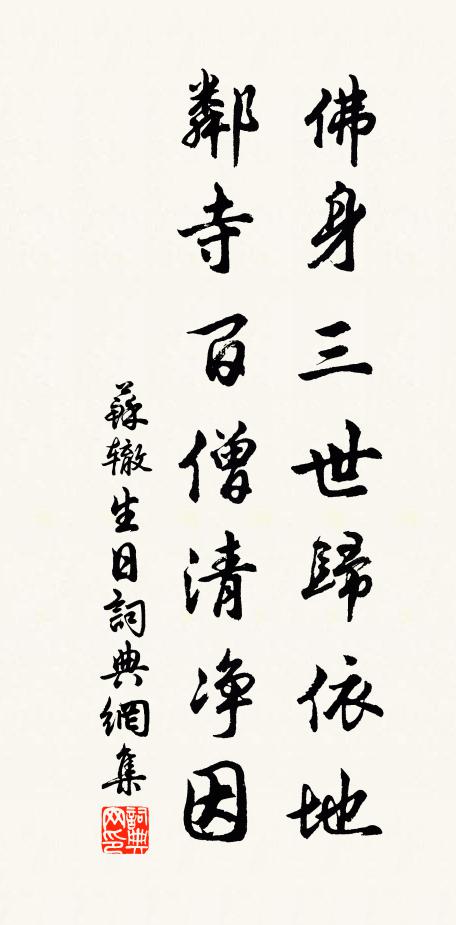 佛身三世歸依地
鄰寺百僧清净因
蘇辙生日詞典網集
詞典網印